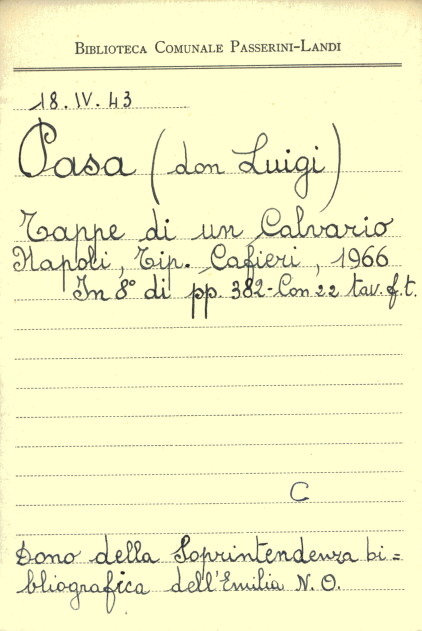 BIBLIOTECA COMUNALE PASSERINI-LANDI
18.IV.43
Pasa (don Luigi)
Tappe di un Calvario
Napoli, Tip. Cafieri, 1966
In 8° di pp. 382-Con 22 tav.f.t.
C
Dono della Soprintendenza bi=
bliografica dell'Emilia N.O.